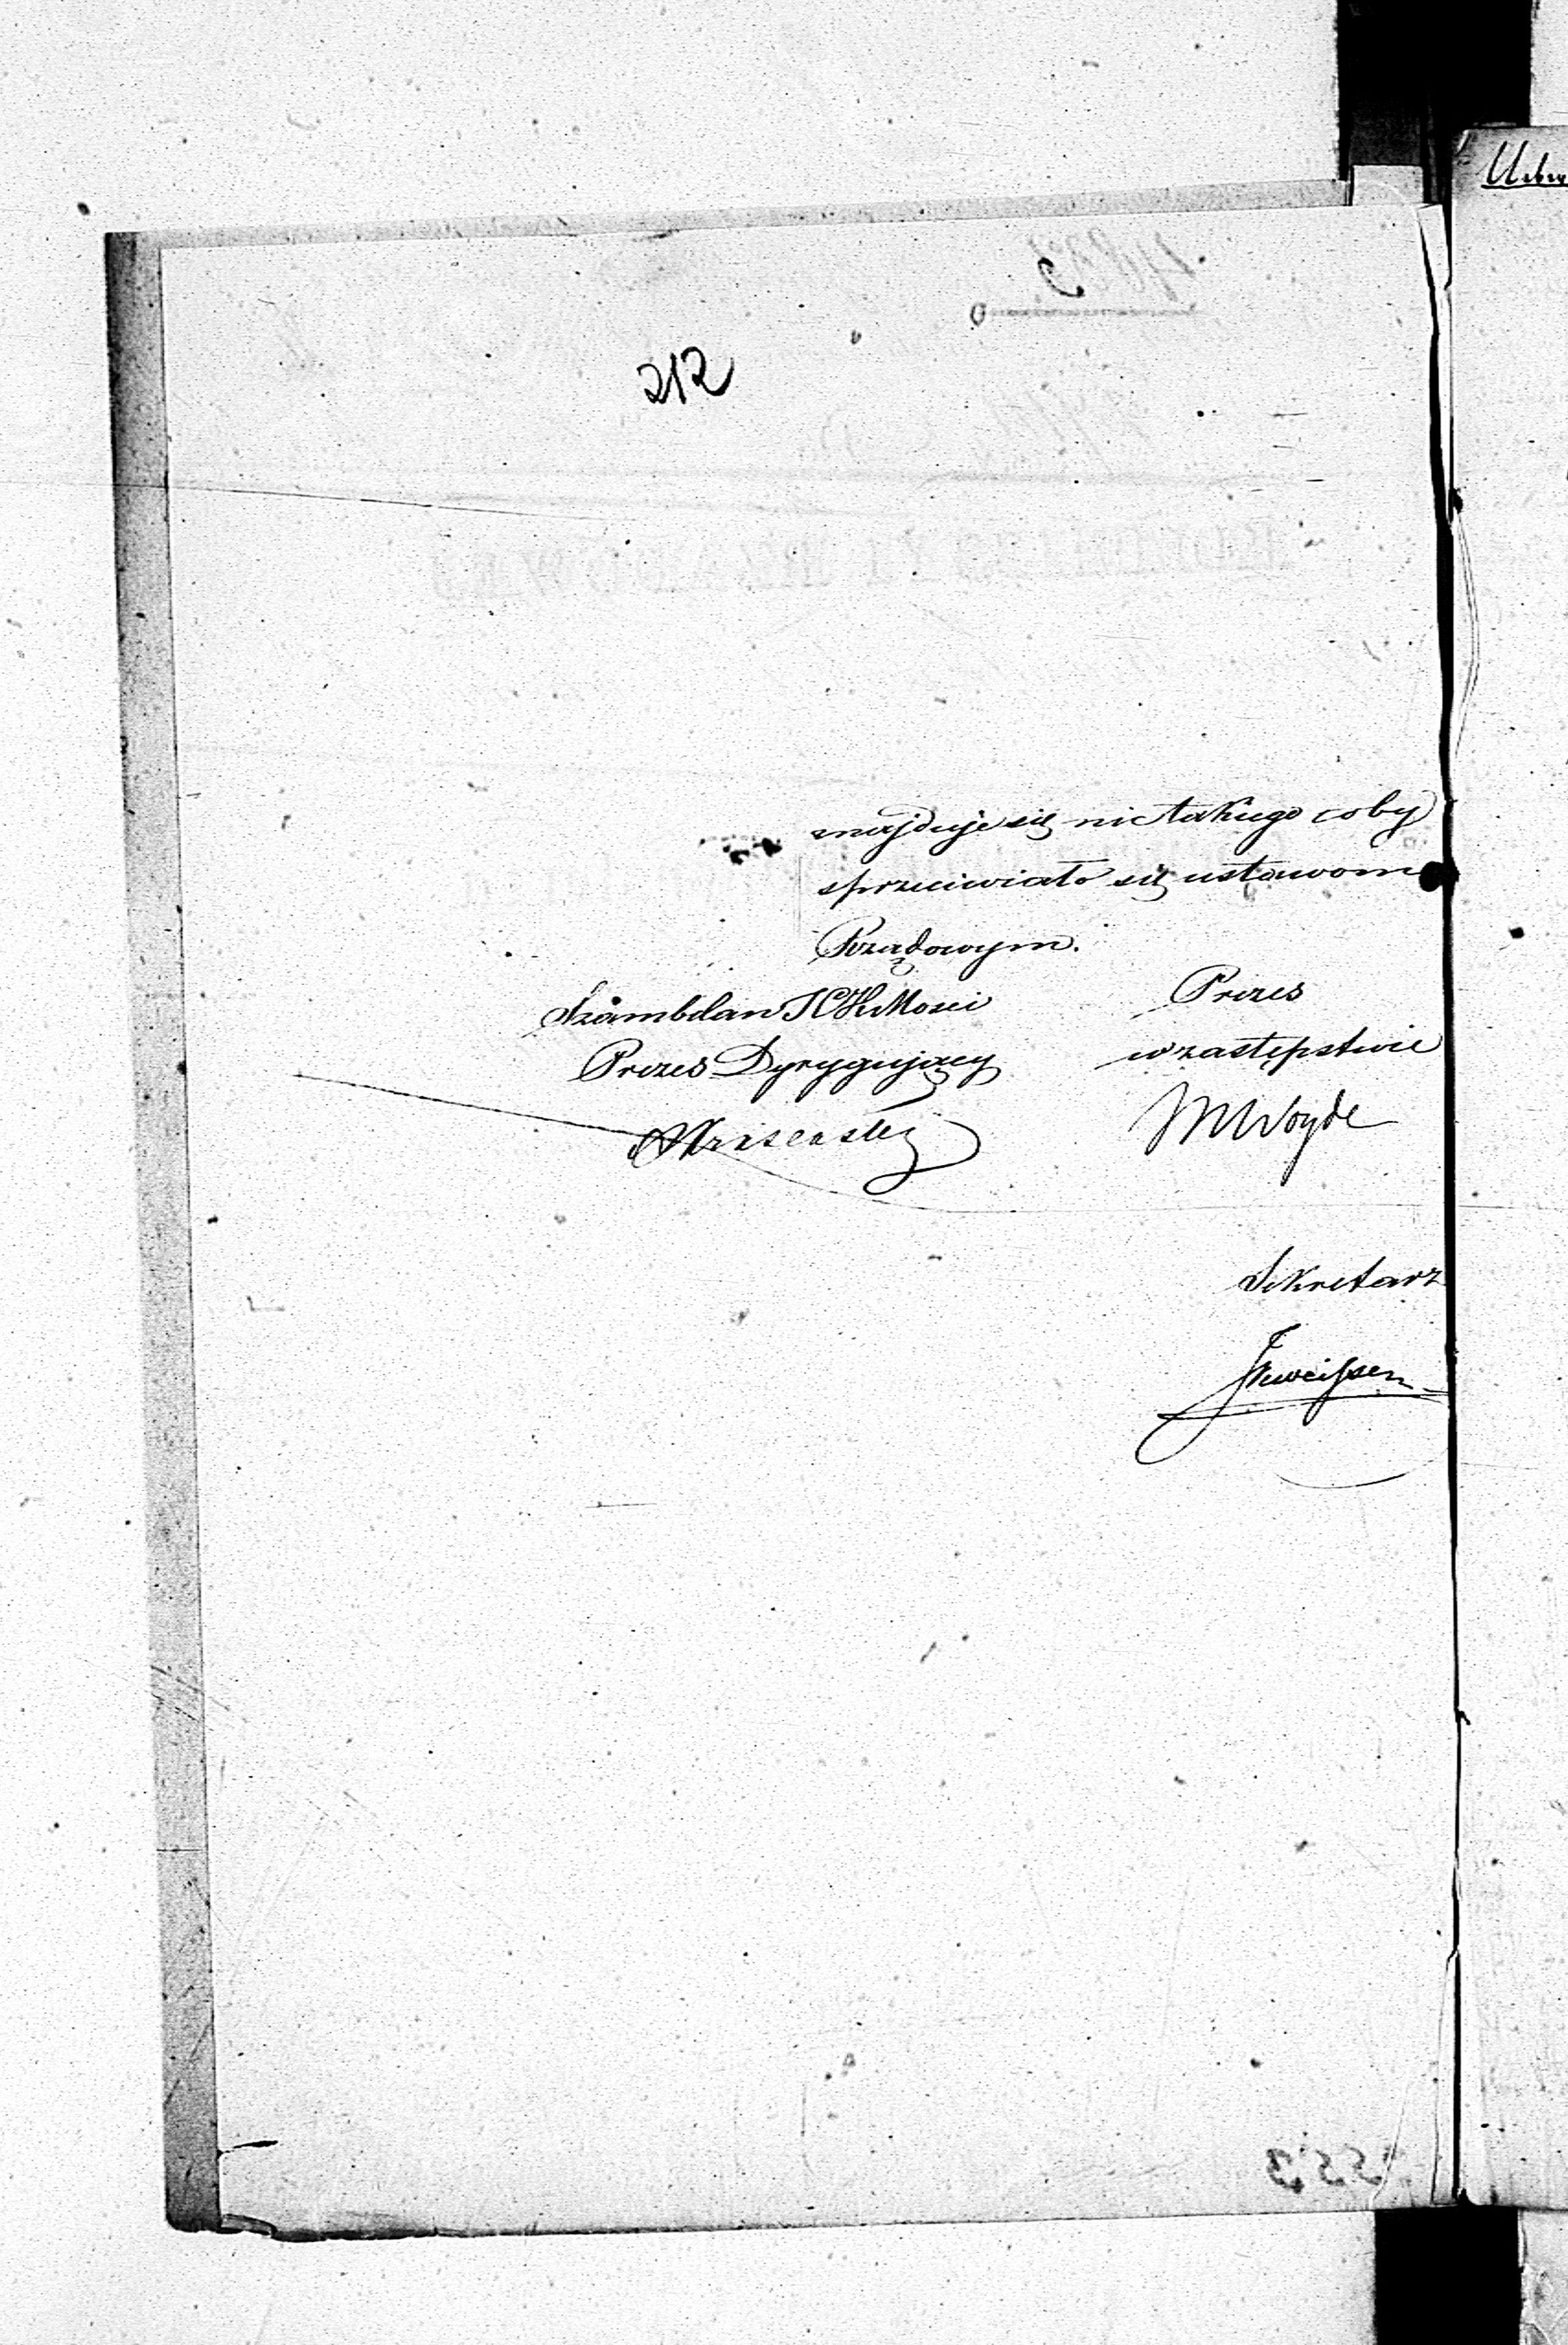 212
znajduje się nic takiego coby
sprzeciwiało się ustawom
Rządowym.
Szambelan JCK Mości
Prezes Dyrygujący
Prezes
w zastępstwie
MWoyde
Sekretarz